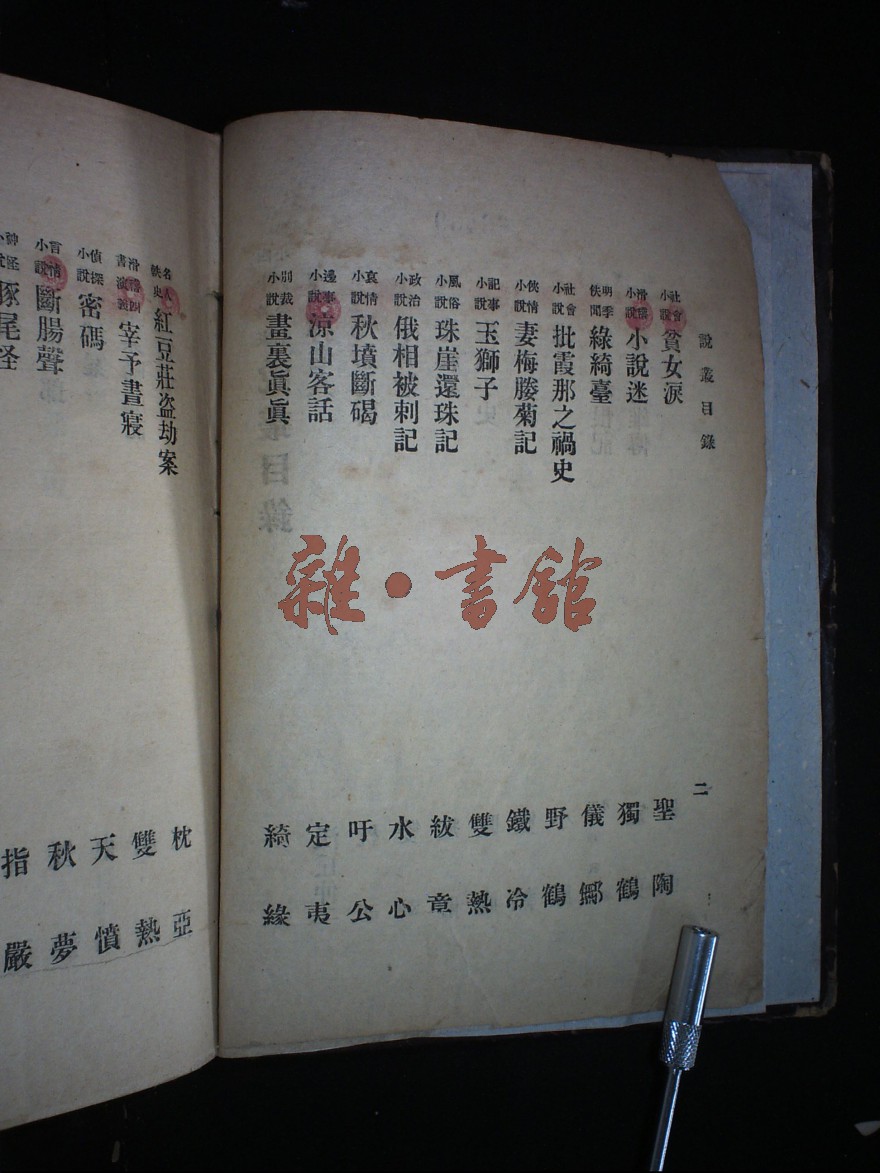 說叢目錄
二
社會小說 貧女淚 聖陶
滑稽小說 小說迷 獨鶴
明季佚聞 綠綺臺 儀鄦
社會小說 批霞那之禍史 野鶴
俠情小說 妻梅媵菊記 鐵冷
記事小說 玉獅子 雙熱
風俗小說 珠崖還珠記 紱章
政治小說 俄相被刺記 水心
哀情小說 秋墳斷碣 吁公
邊事小說 涼山客話 定夷
別裁小說 畫裏眞眞 綺緣
名人佚史 紅豆莊盜劫案 枕亞
宰予晝寢 雙熱
偵探小說 密碼 天憤
言情小說 斷腸聲 秋夢
神怪小說 豚尾怪 指嚴
雜·書館